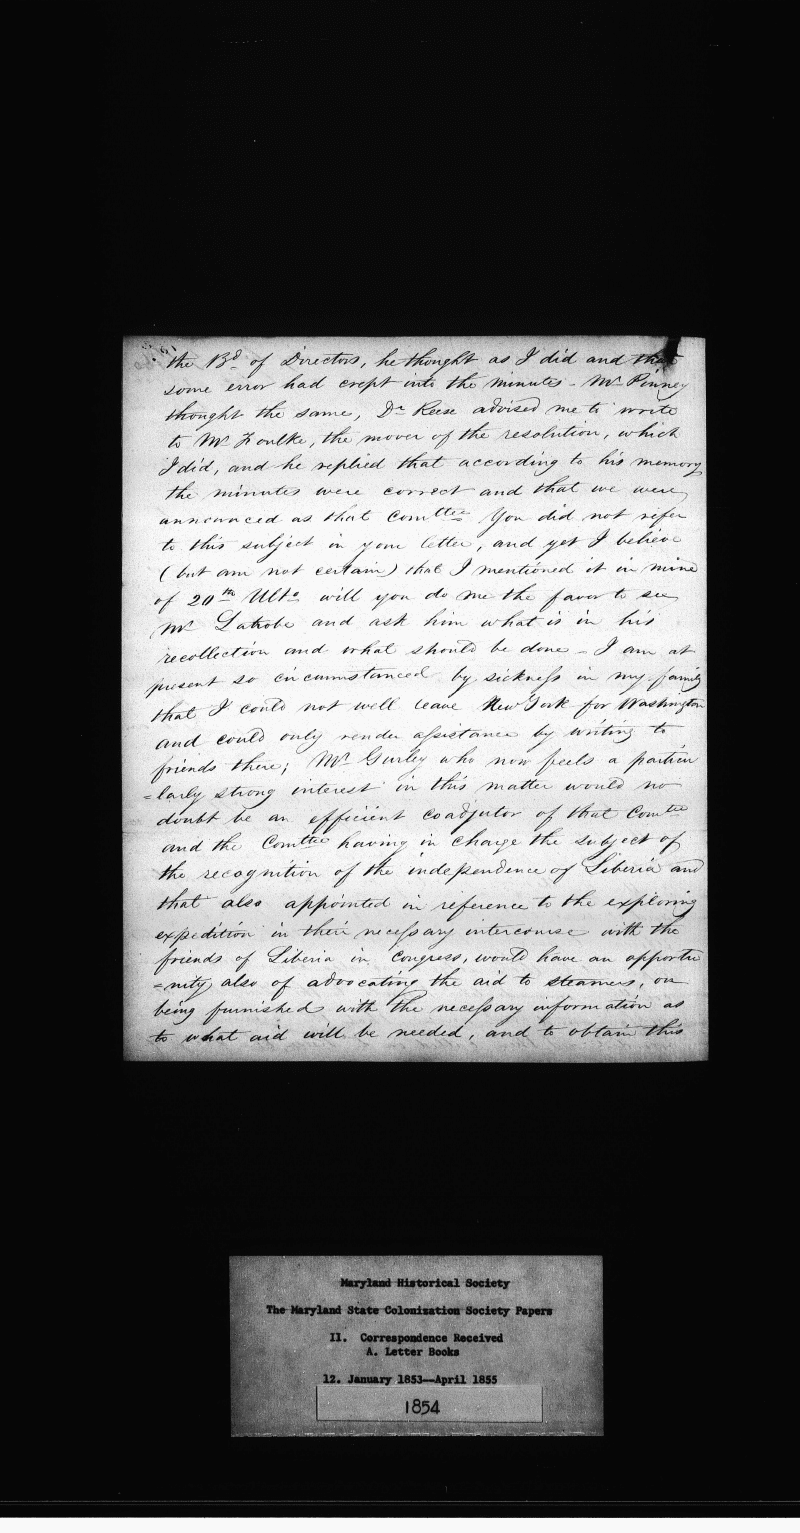 the Bd of Directors, he thought as I did and that
some error had crept into the minutes - Mr Pinney
thought the same, Dr Reese advised me to write
to Mr Foulke, the mover of the resolution, which
I did, and he replied that according to his memory
the minutes were correct and that we were
announced as that Comttee You did not refer
to this subject in your letter, and yet I believe
(but am not certain) that I mentioned it in mine
of 20th Ulto will you do me the favor to see
Mr Latrobe and ask him what is in his
recollection and what should be done - I am at
present so circumstanced by sickness in my family
that I could not well leave New York for Washington
and could only render assistance by writing to
friends there; Mr Gurley who now feels a particu
=larly strong interest in this matter would no
doubt be an efficient coadjutor of that Comtee
and the Comttee having in charge the subject of
the recognition of the independence of Liberia and
that also appointed in reference to the exploring
expedition in their necessary intercourse with the
friends of Liberia in Congress, would have an opportu
=nity also of advocating the aid to steamers, on
being furnished with the necessary information as
to what aid will be needed, and to obtain this
Maryland Historical Society
The Maryland State Colonization Society Papers
II. Correspondence Received
A. Letter Books
12. January 1853--April 1855
1854